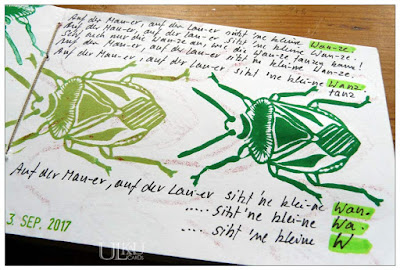 Auf der Mau-er, auf der Lau-er sitzt 'ne kleine Wan-ze.
Auf der Mau-er, auf der Lau-er sitzt 'ne kleine Wan-ze.
Seht euch nur die Wan-ze an, wie die Wan-ze tanzen kann!
Auf der Mau-er, auf der Lau-er sitzt 'ne klei-ne Wan-ze.
Auf der Mau-er, auf der Lau-er sitzt 'ne klei-ne Wanz
tanz
Auf der Mau-er, auf der Lau-er sitzt 'ne klei-ne Wan.
..... sitzt 'ne klei-ne Wa.
..... sitzt 'ne kleine W
3. SEP. 2017